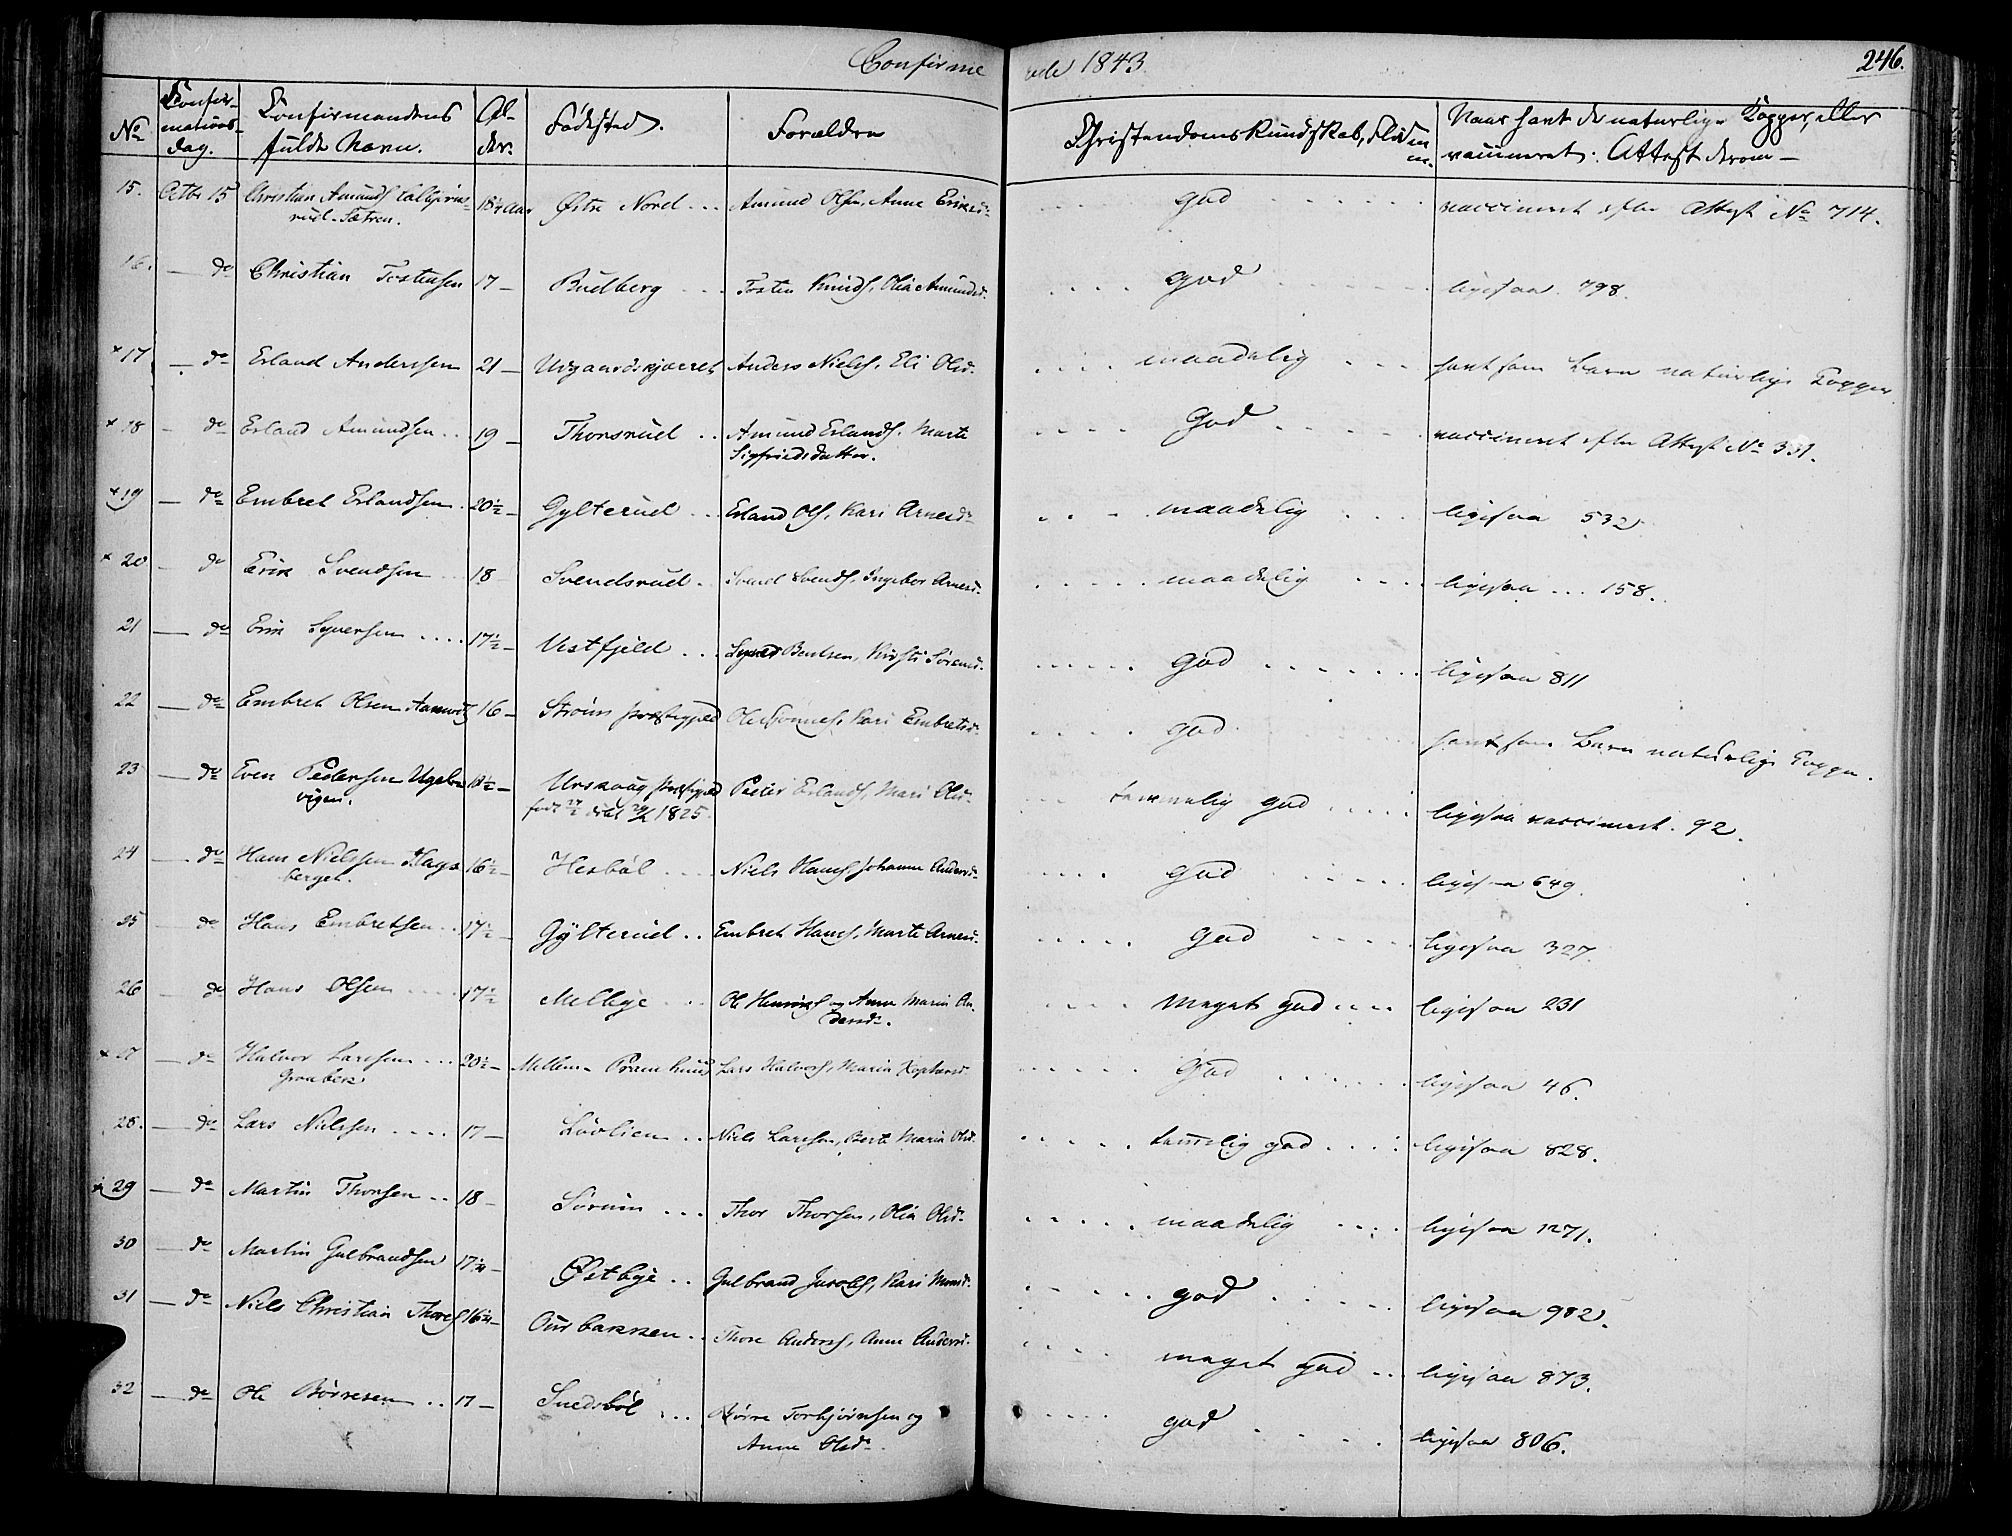 Confirmerede 1843. 246.
No Confirmations-dag. Confirmandens fulde Navn. Alder. Fødested. Forældre Christendoms Kundskab, Flid m. m. Naar havt de naturlige Kopper, eller vaccineret. Attest derom —
15. Octbr 15 Christian Amunds 18 1/2 Aar Østre Nord ... Amund Olsen, Anne Eriksd. .... god ...... vaccineret efter Attest No 714.
rud-Sætren.
16. — do Christian Tostensen 17 — Budberg ... Tosten Knuds, Olia Amundsd. .... god ...... ligesaa 798.
× 17 — do Erland Anderssen 21 — Udgaardskjæret Anders Niels, Eli Olsd. .... maadelig ... havt som Barn naturlige Kopper.
× 18 — do Erland Amundsen .. 19 — Thorsrud .. Amund Erlands, Marte .... God ..... vaccineret efter Attest No 331.
Sigfriedsdatter.
× 19 — do Embret Erlandsen . 20 1/2 — Gylterud .. Erland Ols, Kari Arnesd. ... maadelig ... ligesaa 532
× 20 — do Erik Svendsen .. 18 Svendsrud . Svend Svends, Ingebor Arnesd. ..... maadelig .... ligesaa ... 158.
21 — do Erik Syversen .... 17 1/2 — Vestfjeld ... Syver Bentsen, Kirsti Sørensd. ..... god ...... ligesaa 811
22 — do Embret Olsen 16 — Strøms præstegjeld Ole Kari Embretsd. .... god havt som Barn naturlige Kopper.
23 — do Even Pedersen Ugelvigen. 18 1/2 — Urskoug præstegjeld Peder Erlands, Mari Olsd. ... temmelig god .... ligesaa vaccineret. 92.
født døbt 1825.
24 — do Hans Nielssen Hagaberget. 16 1/2 — Hesbøl ... Niels Hans, Johanne Andersd. .... god ..... ligesaa 649.
25 — do Hans Embretsen .. 17 1/2 — Gylterud .. Embret Hans, Marte Arnesd. ..... god ..... ligesaa 327.
26 — do Hans Olsen .... 17 1/2 Melbye ... Ole og Anne Maria Andersd. .... Meget god .... ligesaa 231
× 27 — do Halvor Larssen ... 20 1/2 — Mellem-Pramhuus Lars Halvors, Maria ..... god ...... ligesaa 46.
28. — do Lars Nielssen .... 17 — Løvlien .. Niels Larssen, Bert Maria Olsd. ..... temelig god ... ligesaa 828.
× 29 — do Martin Thorsen .. 18 — Sørum ... Thor Thorsen, Olia Olsd. ..... maadelig .... ligesaa 1271.
30 — do Martin Gulbrandsen 17 1/4 — Østbye .. Gulbrand Jacobs, Kari ..... god ..... ligesaa 982.
31 — do Niels Christian Thores 16 1/2 — Ourbakken .. Thore Anders, Anne Andersd. .... meget god .. ligesaa 873.
32 — do Ole Børresen .. 17 — Suedsbøl ... Børre Torbjørnsen og .... god ..... ligesaa 806.
Anne Olsd.